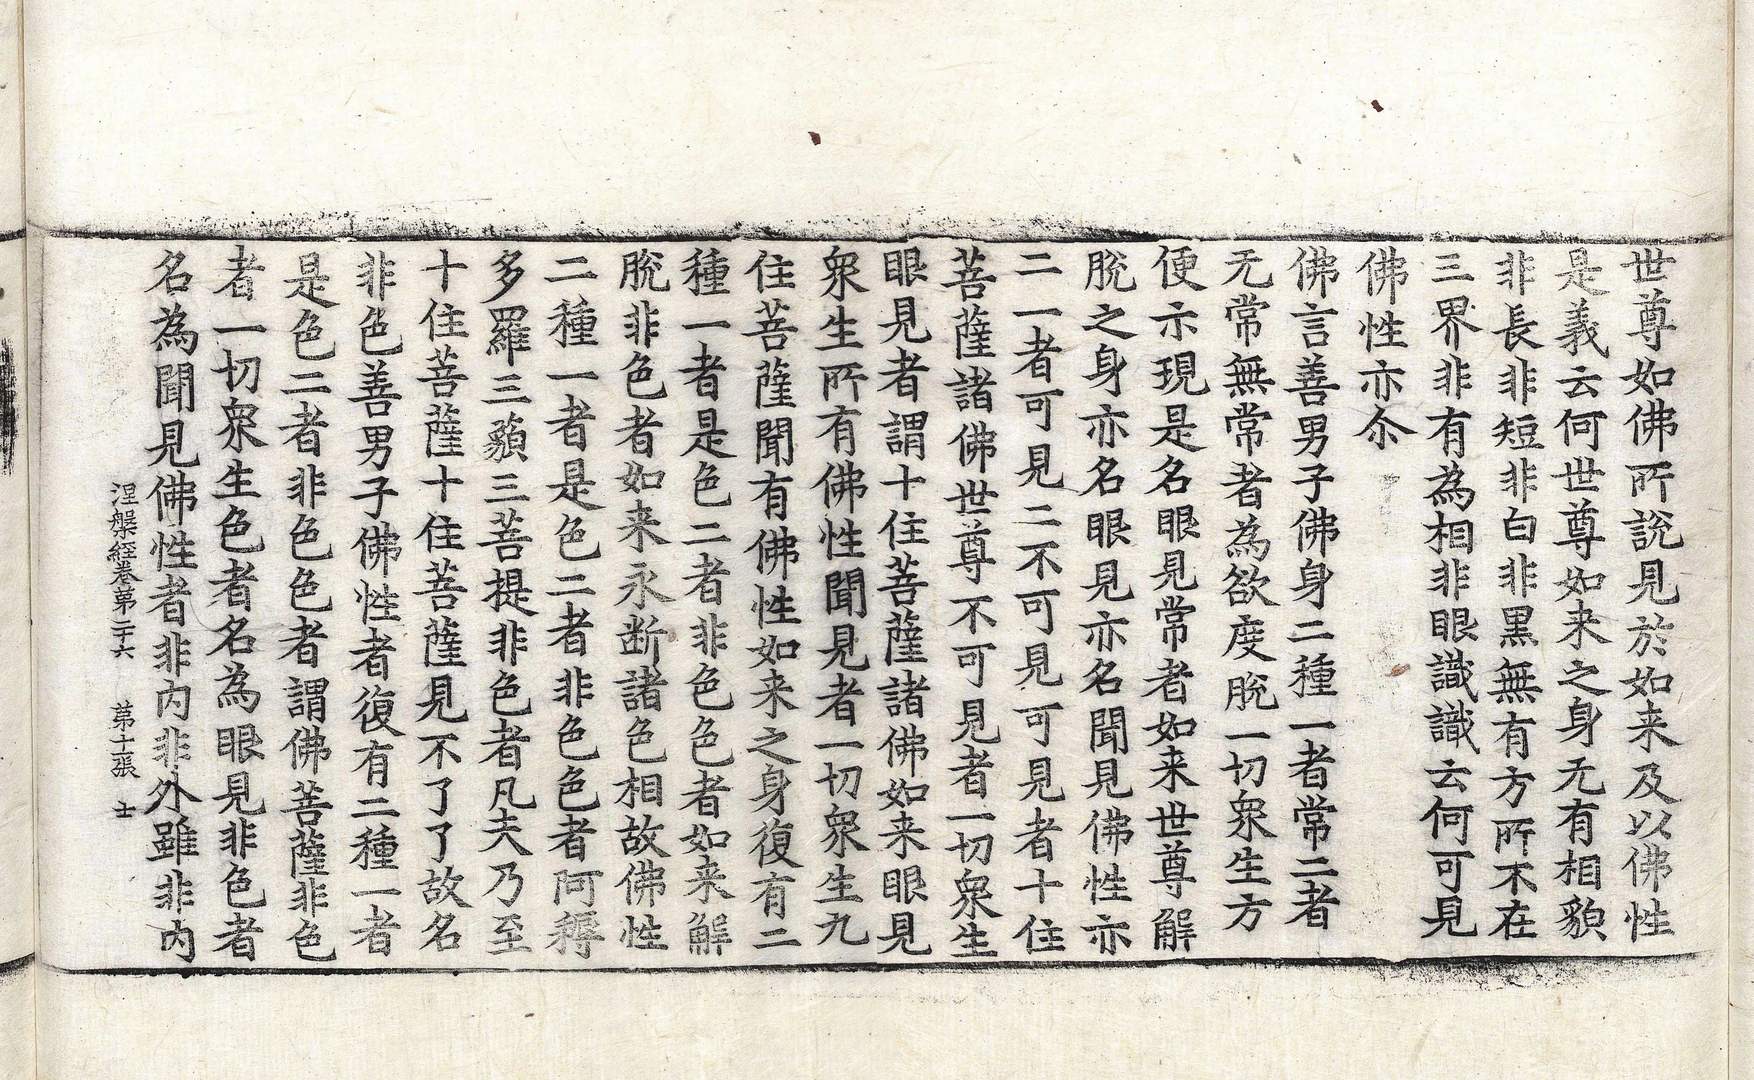 世尊如佛所說見於如来及以佛性
是義云何世尊如来之身无有相貌
非長非短非白非黒無有方所不在
三界非有為相非眼識識云何可見
佛性亦尒
佛言善男子佛身二種一者常二者
无常無常者為欲度脫一切衆生方
便示現是名眼見常者如来世尊解
脫之身亦名眼見亦名聞見佛性亦
二一者可見二不可見可見者十住
菩薩諸佛世尊不可見者一切衆生
眼見者謂十住菩薩諸佛如来眼見
衆生所有佛性聞見者一切衆生九
住菩薩聞有佛性如来之身復有二
種一者是色二者非色色者如来解
脫非色者如来永断諸色相故佛性
二種一者是色二者非色色者阿耨
多羅三藐三菩提非色者凡夫乃至
十住菩薩十住菩薩見不了了故名
非色善男子佛性者復有二種一者
是色二者非色色者謂佛菩薩非色
者一切衆生色者名為眼見非色者
名為聞見佛性者非内非外雖非内
涅槃經卷第二十六 第十張 士